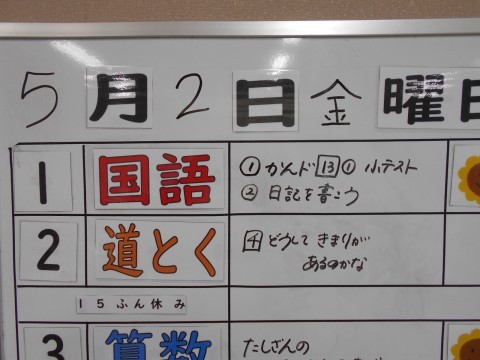 5月2日金曜日
1 国語 ①かんド13① 小テスト
②日記を書こう
2 道とく 4 どうして きまりが
あるのかな
15ふん休み
3 算数 たしざんの